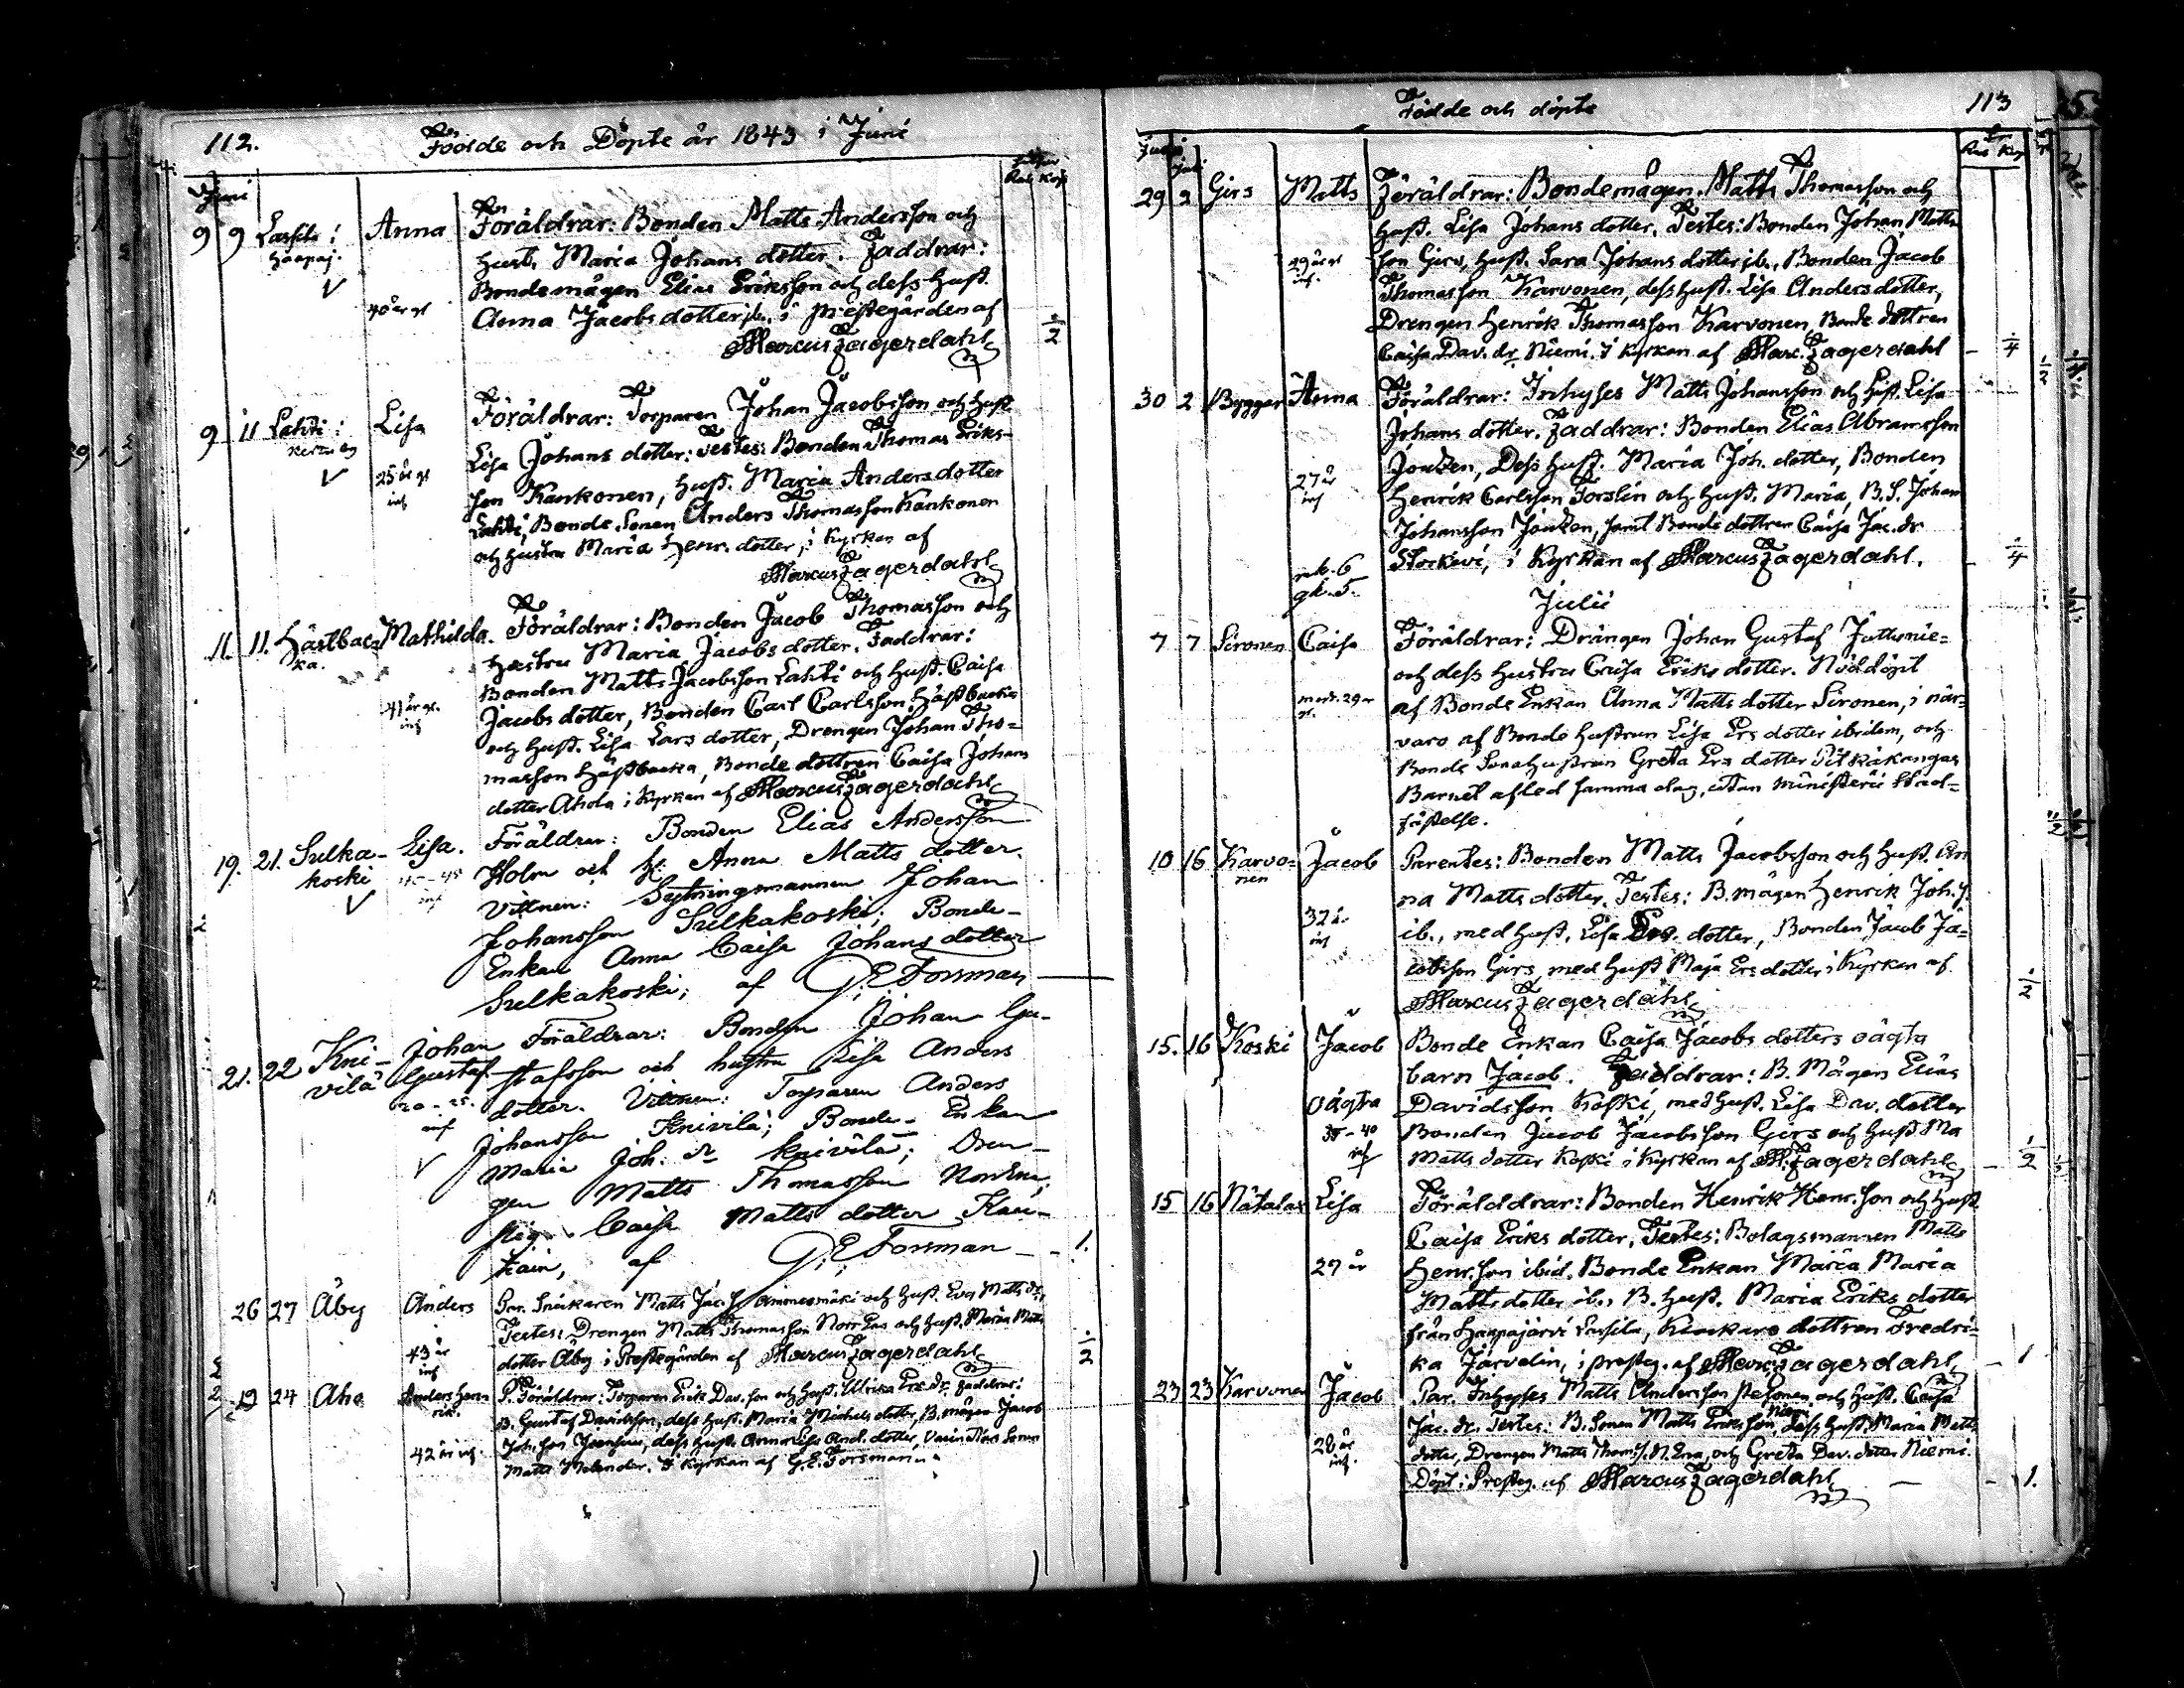 112.
Födde och Döpte år 1843 i Juni
Juni
9 9 Lassila i Haapaj. Anna Föräldrar: Bonden Matts Andersson och
hust. Maria Johans dotter. Faddrar:
Bondemågen Elias Eriksson och dess hust.
40 år gl Anna Jacobs dotter ib. i Prestegården af
Marcus Fagerdahl
9 11 Lahti i Lisa Föräldrar: Torparen Johan Jacobsson och hust.
Lisa Johans dotter: Testes: Bonden Thomas Eriks-
25 år gl son Kankonen, hust. Maria Andersdotter
Lahti, Bonde Sonen Anders Thomasson Kankonen
och hustru Maria Henr. dotter, i Kyrkan af
Marcus Fagerdahl
11. 11. Hästbac- Mathilda. Föräldrar: Bonden Jacob Thomasson och
ka. hustru Maria Jacobs dotter. Faddrar:
Bonden Matts Jacobsson Lahti och hust. Caisa
41 år gl. Jacobs dotter, Bonden Carl Carlsson Hästbacka
och hust. Lisa Lars dotter, Drengen Johan Tho-
masson Hästbacka, Bonde dottren Caisa Johans
dotter Ahola i Kyrkan af Marcus Fagerdahl
19. 21. Sulka- Lisa. Föräldrar: Bonden Elias Andersson
koski Holm och h. Anna Matts dotter.
Vittnen: Sextningsmannen Johan
Johansson Sulkakoski; Bonde-
Enkan Anna Caisa Johans dotter
Sulkakoski; af G. E. Forsman
21. 22 Kni- Johan Föräldrar: Bonden Johan Gu-
vilä Gustaf stafsson och hustru Lisa Anders
20-25. dotter. Vittnen: Torparen Anders
Johansson Knivilä; Bonde- Enkan
Maria Joh. dr Knivilä; Dren-
gen Matts Thomasson Norrena;
Pig. Caisa Matts dotter Kau-
kain, af G. E. Forsman 1.
26 27 Åby Anders Par. Snickaren Matts Jac.s. Ammesmäki och hust. Eva Matts dr,
Testes: Drengen Matts Thomasson Norrena och hust. Maria Matts
43 år dotter Åby i Prestegården af Marcus Fagerdahl
19 24 Aho Anders Hen- P. Föräldrar: Torparen Erik Dav. son och hust. Ulrika Fredr. Faddrar:
rik. B. Gustaf Davidsson, dess hust. Maria Michels dotter, B. mågen Jacob
42 år Joh. son dess hust. Anna Lisa And. dotter,
Matts Melender. i Kyrkan af G. E. Forsman
Födde och döpte
113
Juni Juli
29 2 Girs Matts Föräldrar: Bondemågen Matts Thomasson och
hust. Lisa Johans dotter. Testes: Bonden Johan Matts
29 år gl son Girs, hust. Sara Johans dotter ib., Bonden Jacob
Thomasson Karvonen, dess hust. Lisa Andersdotter,
Drengen Henrik Thomasson Karvonen, Bonde dottren
Caisa Dav. dr Niemi. i Kyrkan af Marc. Fagerdahl
30 2 Byggar Anna Föräldrar: Inhyses Matts Johansson och hust. Lisa
Johans dotter. Faddrar: Bonden Elias Abramsson
27 år Jontzen, Dess hust. Maria Joh. dotter, Bonden
Henrik Carlsson Forslin och hust. Maria, B.S. Johan
Johansson Jontzen, samt Bonde dottren Caisa Jac. dr
mk. 6 i Kyrkan af Marcus Fagerdahl.
qk. 5
Julii
7 7 Sironen Caisa Föräldrar: Drängen Johan Gustaf
och dess hustru Caisa Eriks dotter. Nöddöpt
mod. 29 år gl. af Bonde Enkan Anna Matts dotter Sironen, i när-
varo af Bonde hustrun Lisa Ers dotter ibidem, och
Bonde Sonehustrun Greta Ers dotter Pitkäkangas
Barnet afled samma dag, utan ministerii stad-
fästelse.
10 16 Karvo- Jacob Parentes: Bonden Matts Jacobsson och hust. An
nen na Matts dotter. Testes: B. mågen Henrik Joh.s.
32 år ib., med hust. Lisa dotter, Bonden Jacob Ja-
cobsson Girs, med hust. Maja Ers dotter i Kyrkan af
Marcus Fagerdahl
15. 16 Koski Jacob Bonde Enkan Caisa Jacobs dotters oägta
barn Jacob. Faddrar: B. Mågen Elias
oägta Davidsson Koski, med hust. Lisa Dav. dotter
35-40 Bonden Jacob Jacobsson Girs och hust Ma
Matts dotter Koski i Kyrkan af M. Fagerdahl
15 16 Nätalax Lisa Förälddrar: Bonden Henrik Henr. son och hust.
Caisa Eriks dotter. Testes: Bolagsmannen Matts
29 år Henr. son ibid. Bonde Enkan Maria Maria
Matts dotter ib., B. hust. Maria Eriks dotter
från Haapajärvi Lassila, Klockare dottren Fredri-
ka Järvelin, i presteg. af Marcus Fagerdahl 1
23 23 Karvonen Jacob Par. Inhyses Matts Andersson och hust. Caisa
Jac. dr. Testes: B. Sonen Matts Eriksson Niemi, dess hust. Maria Matts
28 år dotter, Drengen Matts Thom.s. N.Ena, och Greta Dav. dotter Niemi.
Döpt i Presteg. af Marcus Fagerdahl 1.